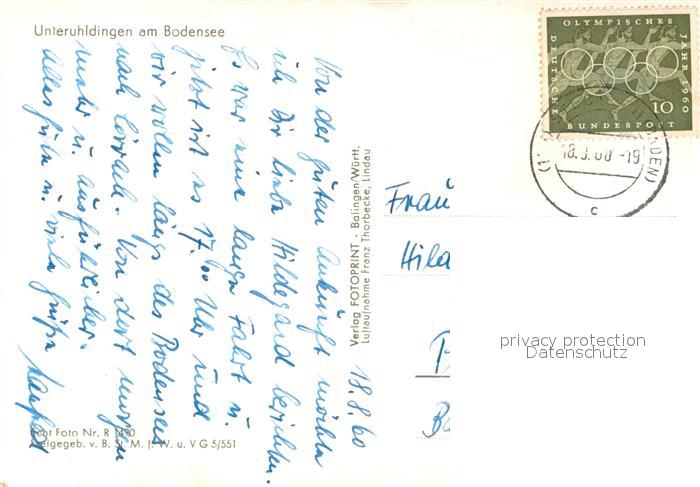 Unteruhldingen am Bodensee
18.8.60
Von der guten Ankunft möchte
ich Dir liebe Hildegard berichten.
Es war eine lange Fahrt u.
jetzt ist es 17.00 Uhr und
wir wollen längs des Bodensees
nach Lörrach. Von dort morgen
mehr u. ausführlicher.
Alles Gute u. viele Grüße
Echt Foto Nr. R
Freigegeb. v. B. St. M. f. W. u. V G 5/551
Verlag FOTOPRINT - Balingen/Württ.
Luftaufnahme Franz Thorbecke, Lindau
OLYMPISCHES
JAHR 1960
DEUTSCHE
BUNDESPOST
10
60 -19
BADEN)
c
Frau
Hild
privacy protection
Datenschutz